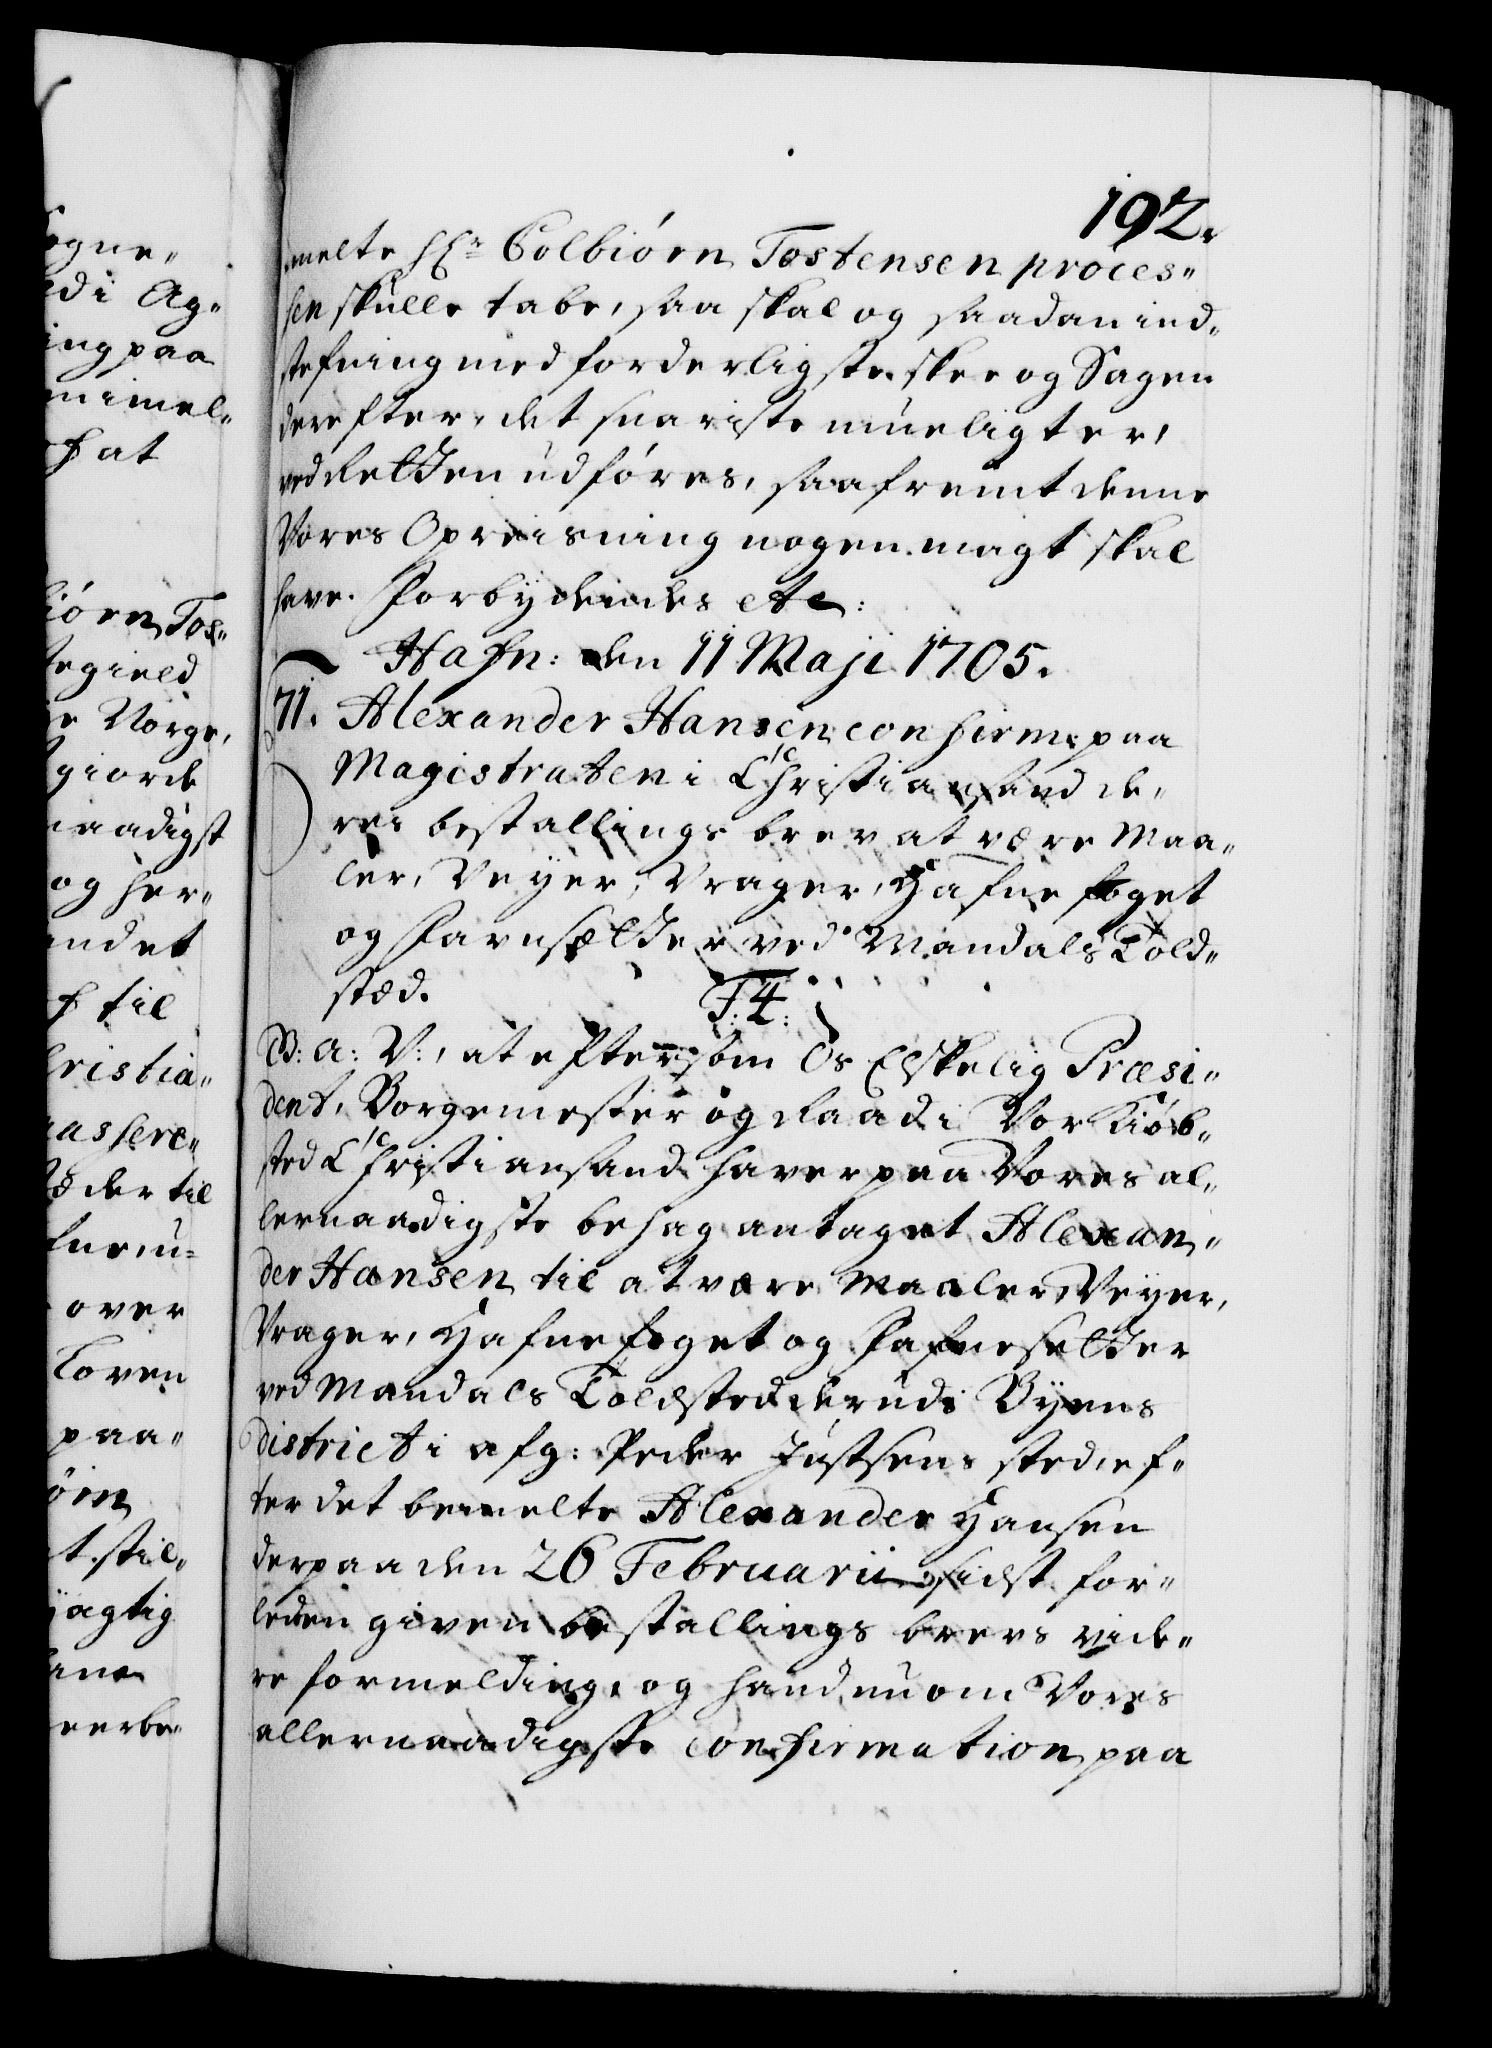 192.
melte Hr Colbiørn Tostensen proces„
sen skulle tabe, saa skal og saadan ind„
stefning med forderligste skee og Sagen
derefter, det snariste mueligt er,
ved Retten udføres, saafremt denne
Vores Opreisning nogen magt skal
have. Forbydendes etc:
Hafn: den 11 Maji 1705.
71. Alexander Hansen confirm: paa
Magistraten i Christiansand de„
res bestallings brev at være Maa„
ler, Veyer, Vrager, Hafne foget
og Havnsetter ved Mandals Told„
sted.
F. 4:
G: A: V:, at eftersom Os Elskelig Præsi„
dent, Borgemester og Raad i Vor Kiøb„
sted Christiansand haver paa Vores al„
lernaadigste behag antaget Alexan„
der Hansen til at være Maaler, Veyer,
Vrager, Hafnefoget og Hafnesetter
ved Mandals Toldsted derudi Byens
district i afg: Peder Justsens sted, ef„
ter det bemelte Alexander Hansen
derpaa den 26 Februarii sidst for„
leden given bestallings brevs vide„
re formelding, og hand nu om Vores
allernaadigste confirmation paa